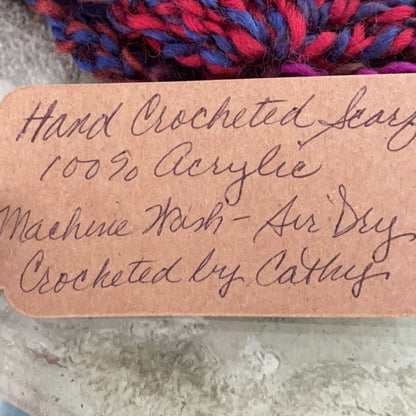 Hand Crocheted Scarf
100% Acrylic
Machine Wash - Air Dry
Crocheted by Cathy